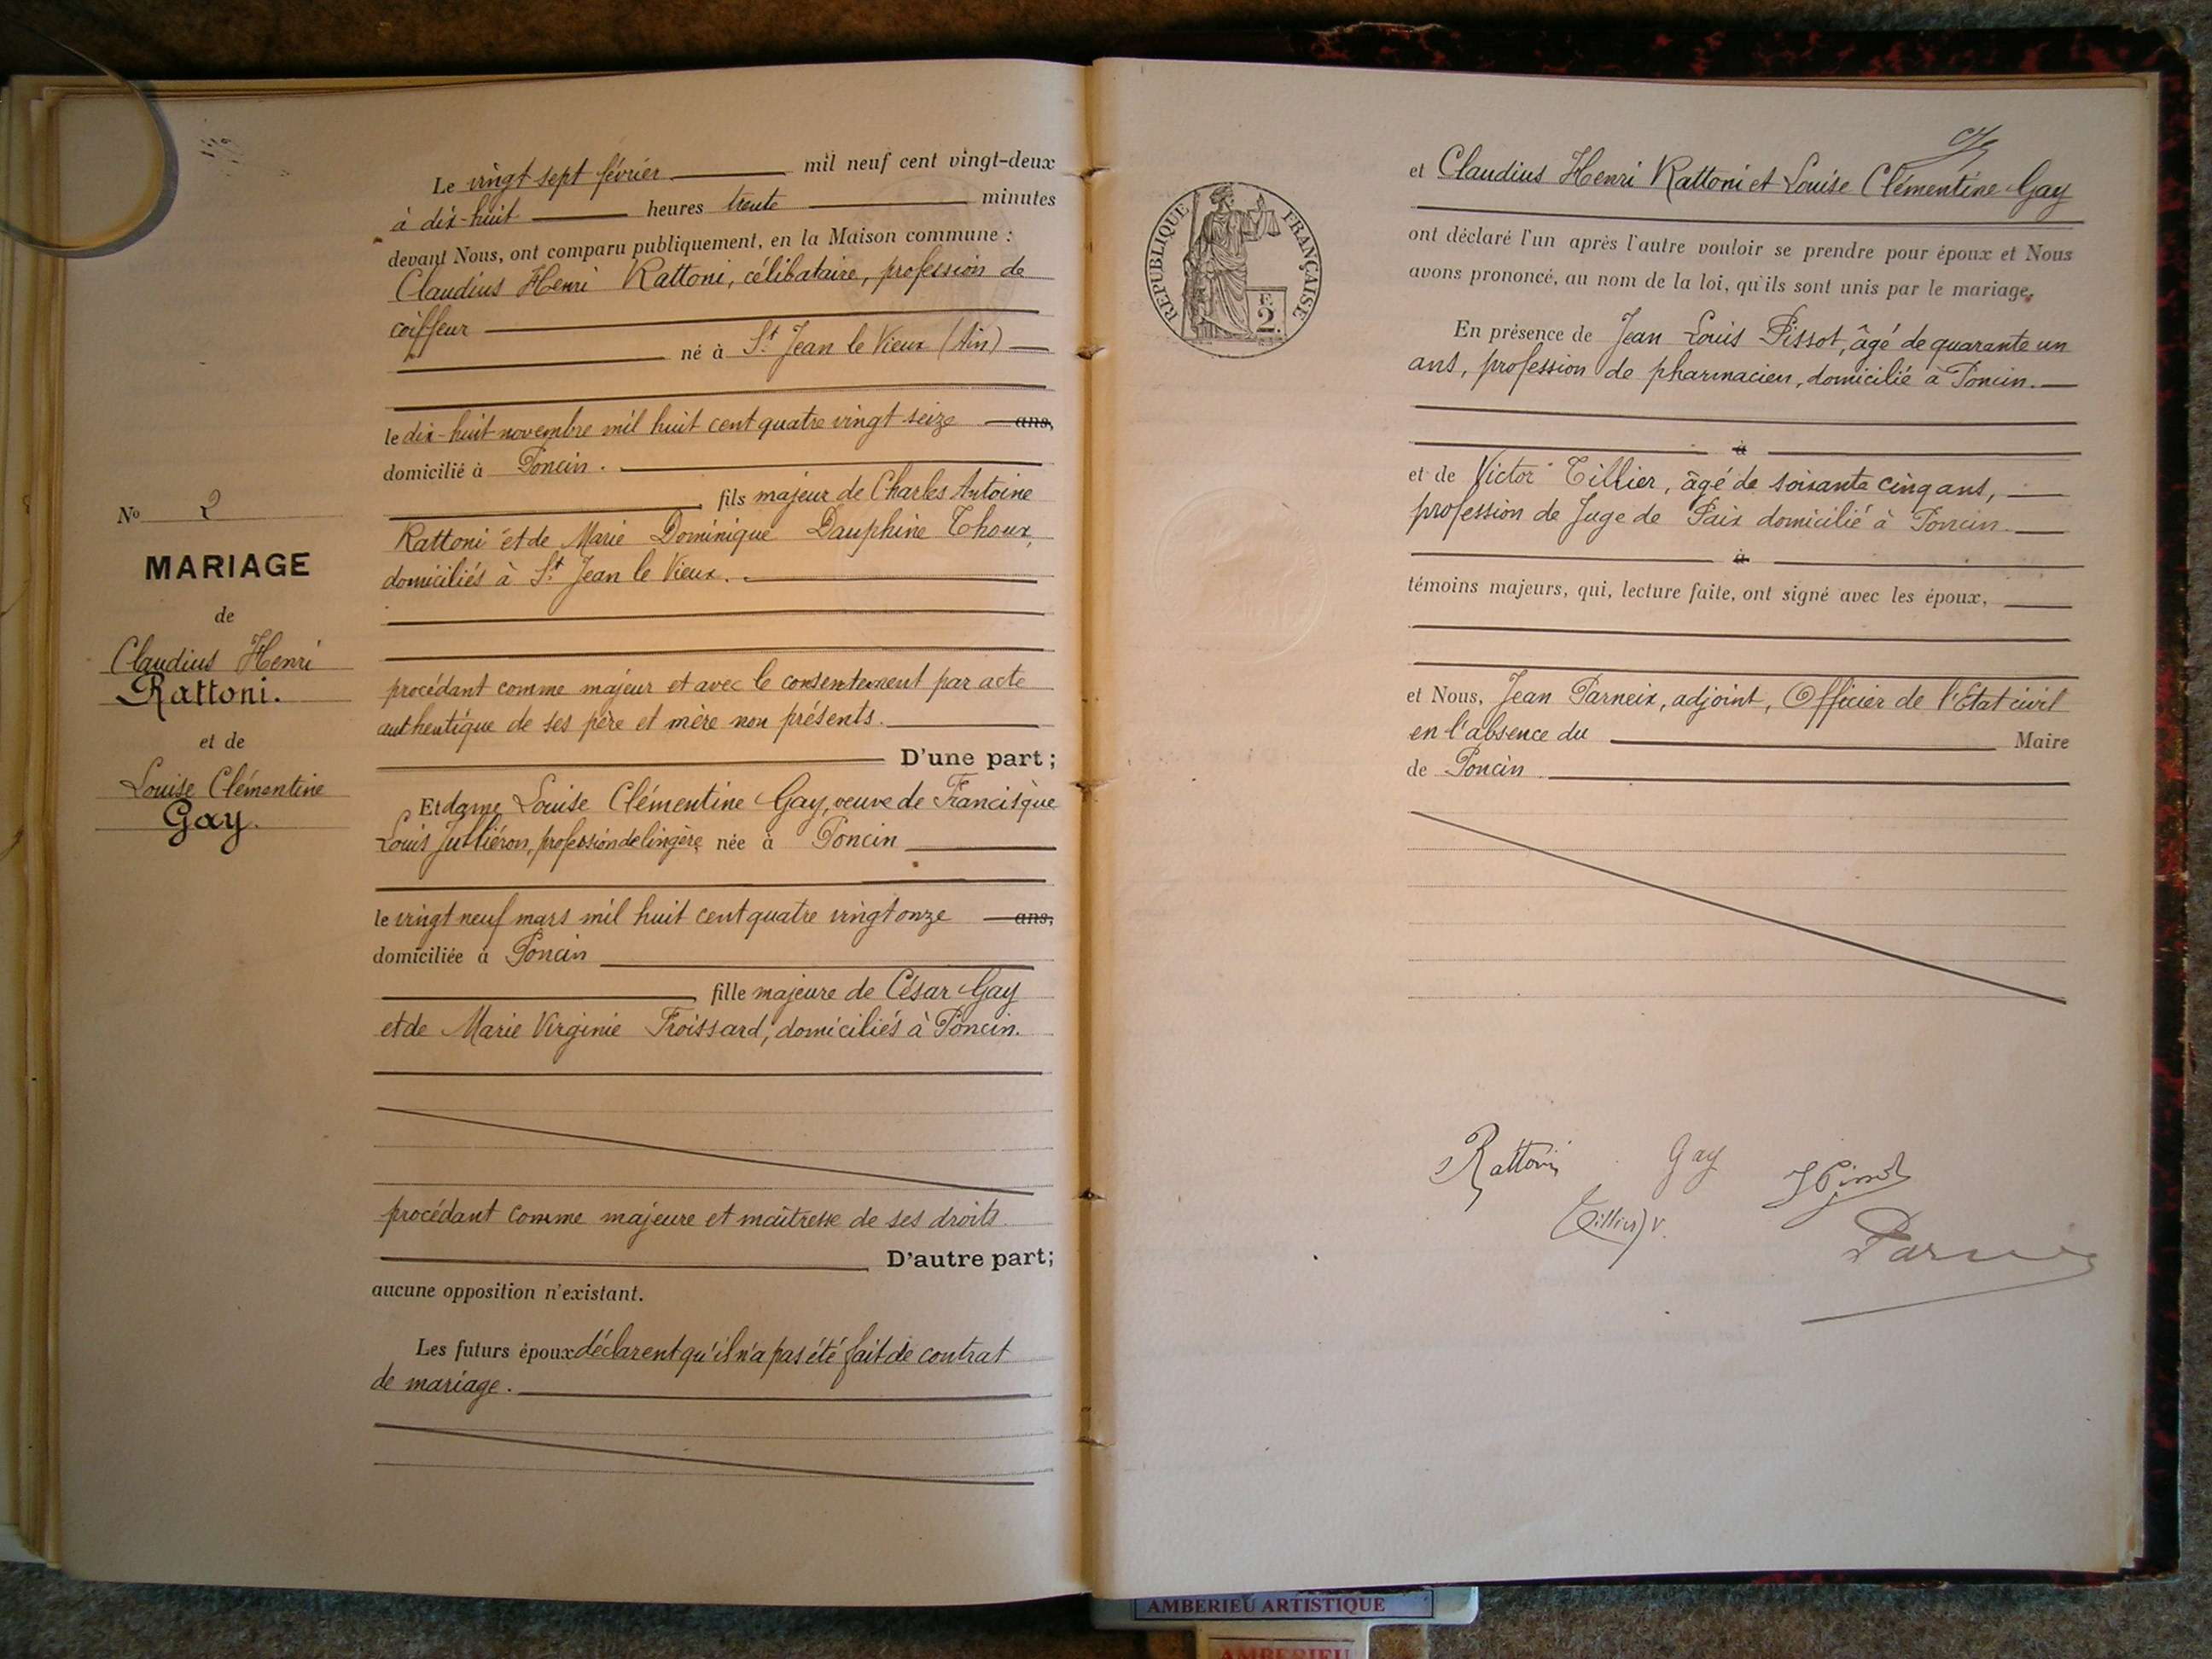 Le vingt sept février mil neuf cent vingt-deux
à dix-huit heures trente minutes
devant Nous, ont comparu publiquement, en la Maison commune :
Claudius Henri Rattoni, célibataire, profession de
coiffeur
né à St Jean le Vieux (Ain)
le dix-huit novembre mil huit cent quatre vingt seize ans,
domicilié à Poncin.
fils majeur de Charles Antoine
Rattoni et de Marie Dominique Dauphine Thoux,
domiciliés à St Jean le Vieux.
procédant comme majeur et avec le consentement par acte
authentique de ses père et mère non présents.
D'une part ;
Et dame Louise Clémentine Gay, veuve de Francisque
Louis Julliéron, profession de lingère née à Poncin
le vingt neuf mars mil huit cent quatre vingt onze ans,
domiciliée à Poncin
fille majeure de César Gay
et de Marie Virginie Froissard, domiciliés à Poncin.
procédant comme majeure et maîtresse de ses droits.
D'autre part;
aucune opposition n'existant.
Les futurs époux déclarent qu'il n'a pas été fait de contrat
de mariage.
No 2
MARIAGE
de
Claudius Henri
Rattoni.
et de
Louise Clémentine
Gay.
RÉPUBLIQUE FRANÇAISE
2
et Claudius Henri Rattoni et Louise Clémentine Gay
ont déclaré l'un après l'autre vouloir se prendre pour époux et Nous
avons prononcé, au nom de la loi, qu'ils sont unis par le mariage,
En présence de Jean Louis Pissot, âgé de quarante un
ans, profession de pharmacien, domicilié à Poncin.
à
et de Victor Tillier, âgé de soixante cinq ans,
profession de Juge de Paix domicilié à Poncin
à
témoins majeurs, qui, lecture faite, ont signé avec les époux,
et Nous, Jean Parneix, adjoint, Officier de l'Etat civil
en l'absence du Maire
de Poncin
Rattoni Gay
Tillier V.
AMBERIEU ARTISTIQUE
AMBERIEU